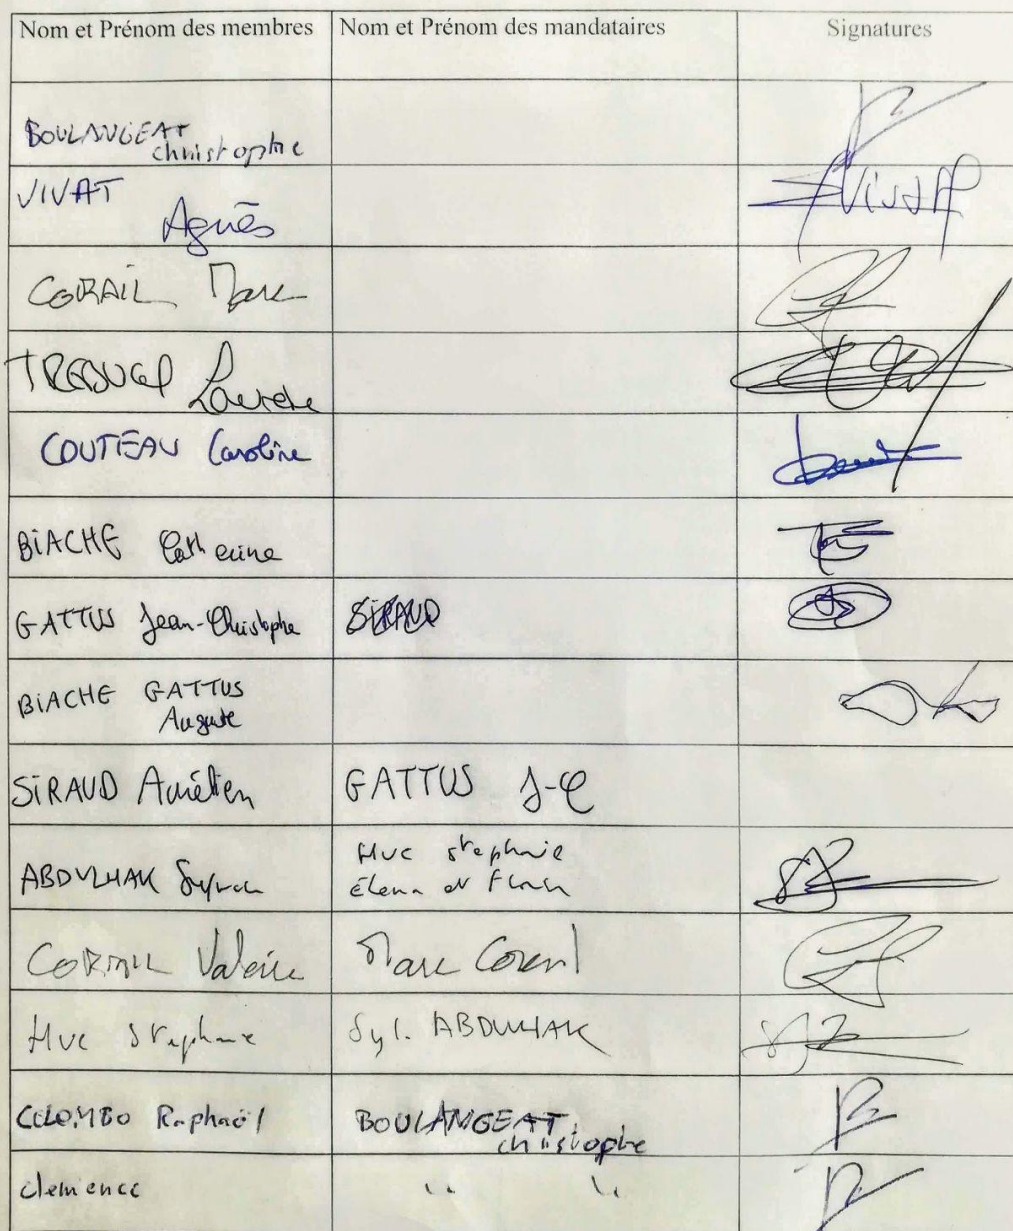 Nom et Prénom des membres Nom et Prénom des mandataires Signatures
BOULANGEAT
christophe
VIVAT
Agnès
VIVAT
CORAIL Marc
COUTEAU Caroline
BIACHE Catherine
GATTUS Jean-Christophe SIRAUD
BIACHE GATTUS
Auguste
SIRAUD Aurélien GATTUS J-C
ABDULHAK Huc stephanie
Élena et
CORAIL Valérie Marc Corail
Huc Stephanie Syl. ABDULHAK
COLOMBO Raphaël BOULANGEAT
christophe
clemence " "